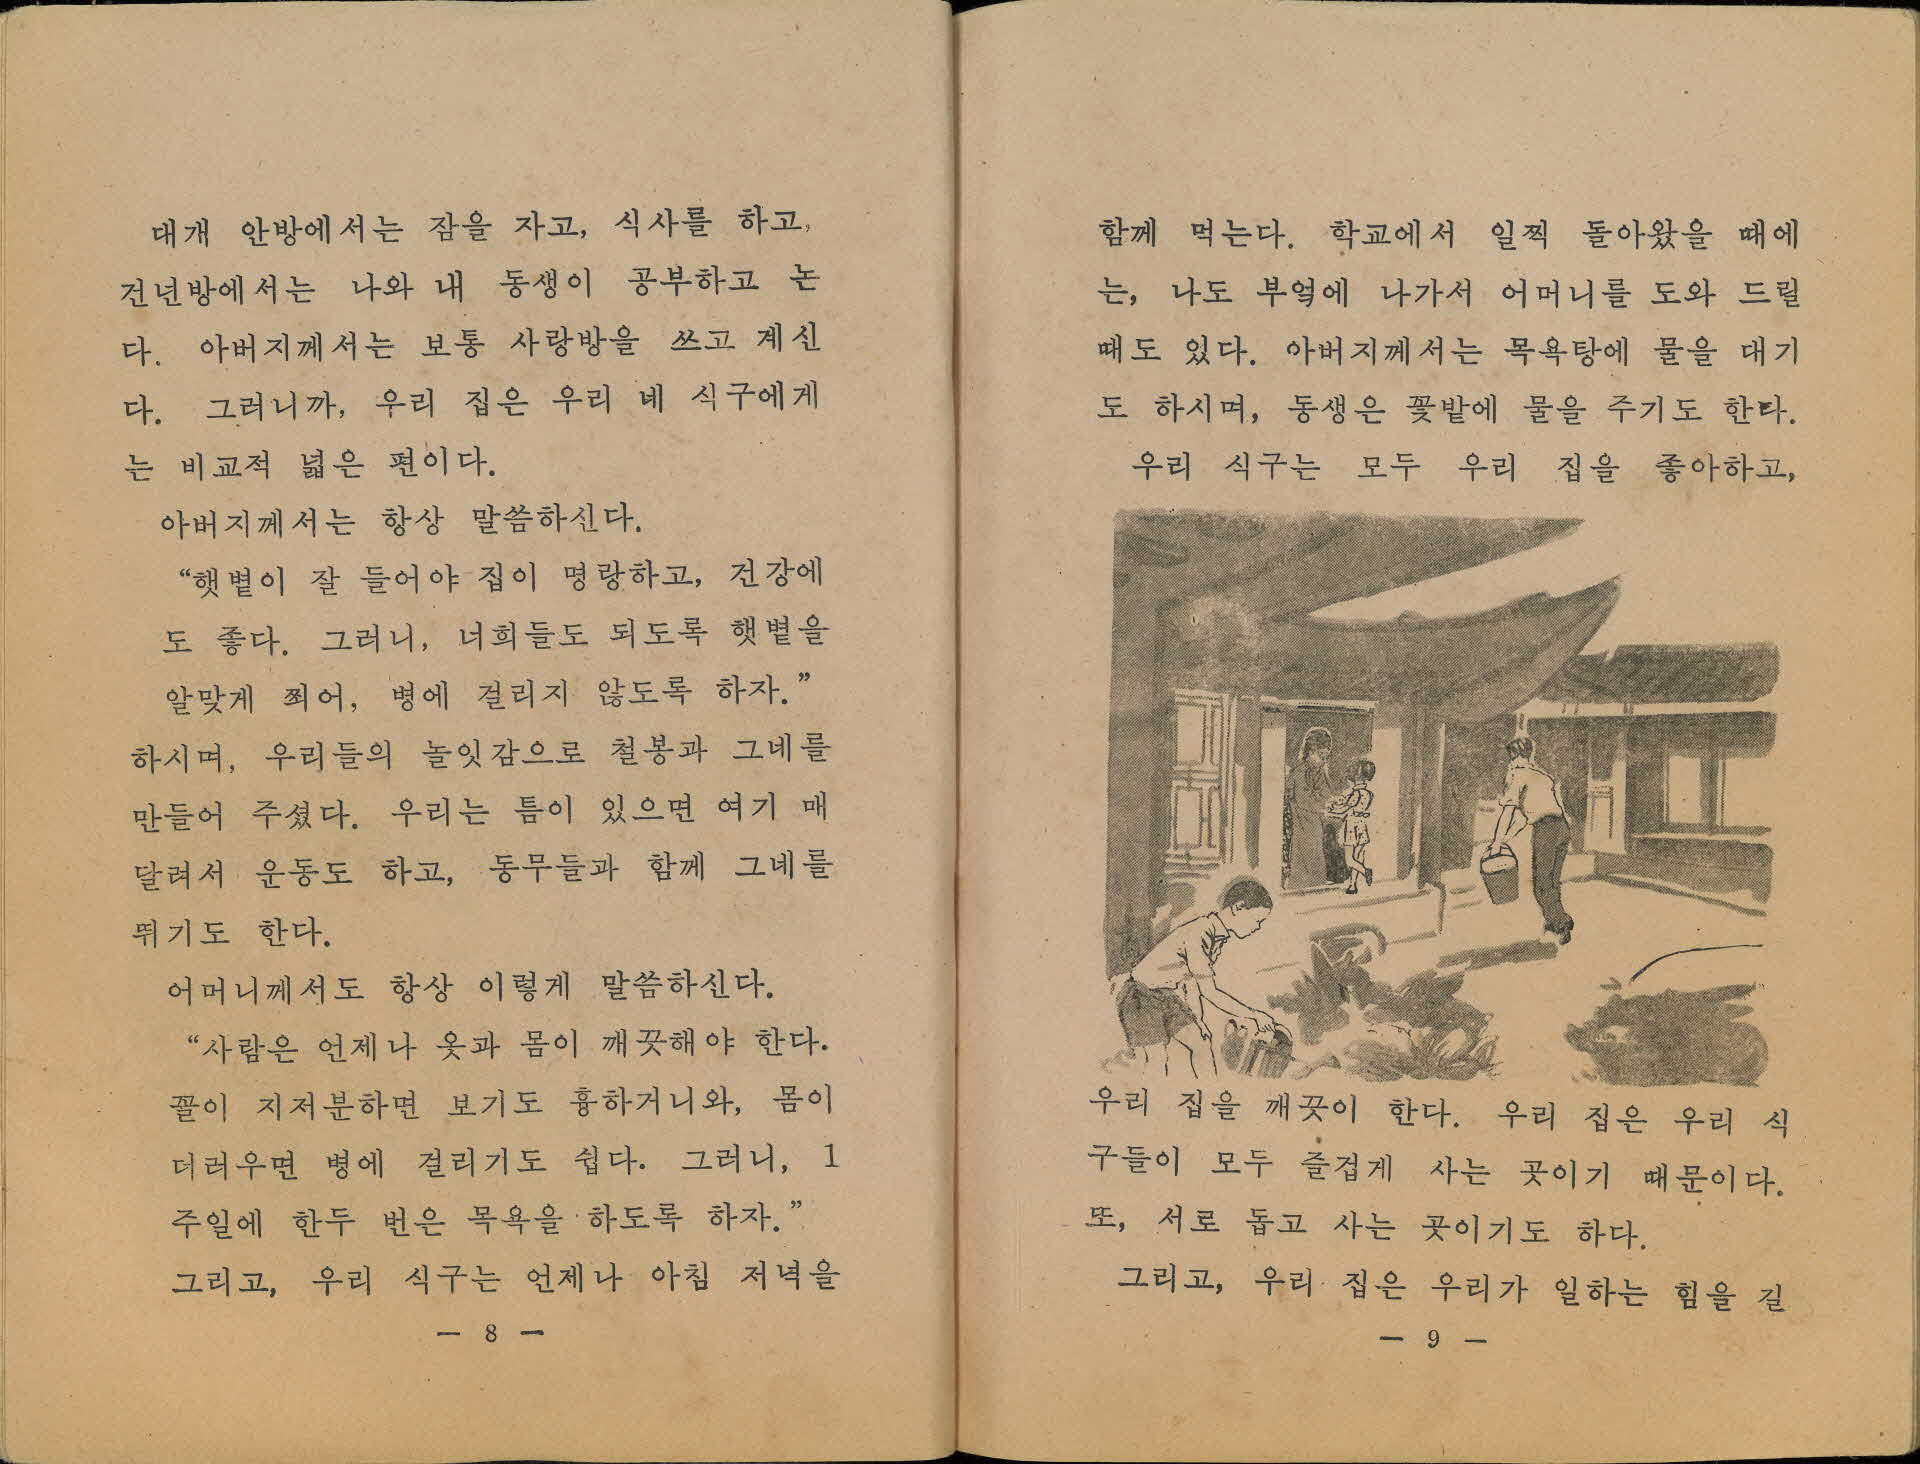 대개 안방에서는 잠을 자고, 식사를 하고,
건넌방에서는 나와 내 동생이 공부하고 논
다. 아버지께서는 보통 사랑방을 쓰고 계신
다. 그러니까, 우리 집은 우리 네 식구에게
는 비교적 넓은 편이다.
아버지께서는 항상 말씀하신다.
“햇볕이 잘 들어야 집이 명랑하고, 건강에
도 좋다. 그러니, 너희들도 되도록 햇볕을
알맞게 쬐어, 병에 걸리지 않도록 하자.”
하시며, 우리들의 놀잇감으로 철봉과 그네를
만들어 주셨다. 우리는 틈이 있으면 여기 매
달려서 운동도 하고, 동무들과 함께 그네를
뛰기도 한다.
어머니께서도 항상 이렇게 말씀하신다.
“사람은 언제나 옷과 몸이 깨끗해야 한다.
꼴이 지저분하면 보기도 흉하거니와, 몸이
더러우면 병에 걸리기도 쉽다. 그러니, 1
주일에 한두 번은 목욕을 하도록 하자.”
그리고, 우리 식구는 언제나 아침 저녁을
— 8 —
함께 먹는다. 학교에서 일찍 돌아왔을 때에
는, 나도 부엌에 나가서 어머니를 도와 드릴
때도 있다. 아버지께서는 목욕탕에 물을 대기
도 하시며, 동생은 꽃밭에 물을 주기도 한다.
우리 식구는 모두 우리 집을 좋아하고,
우리 집을 깨끗이 한다. 우리 집은 우리 식
구들이 모두 즐겁게 사는 곳이기 때문이다.
또, 서로 돕고 사는 곳이기도 하다.
그리고, 우리 집은 우리가 일하는 힘을 길
— 9 —